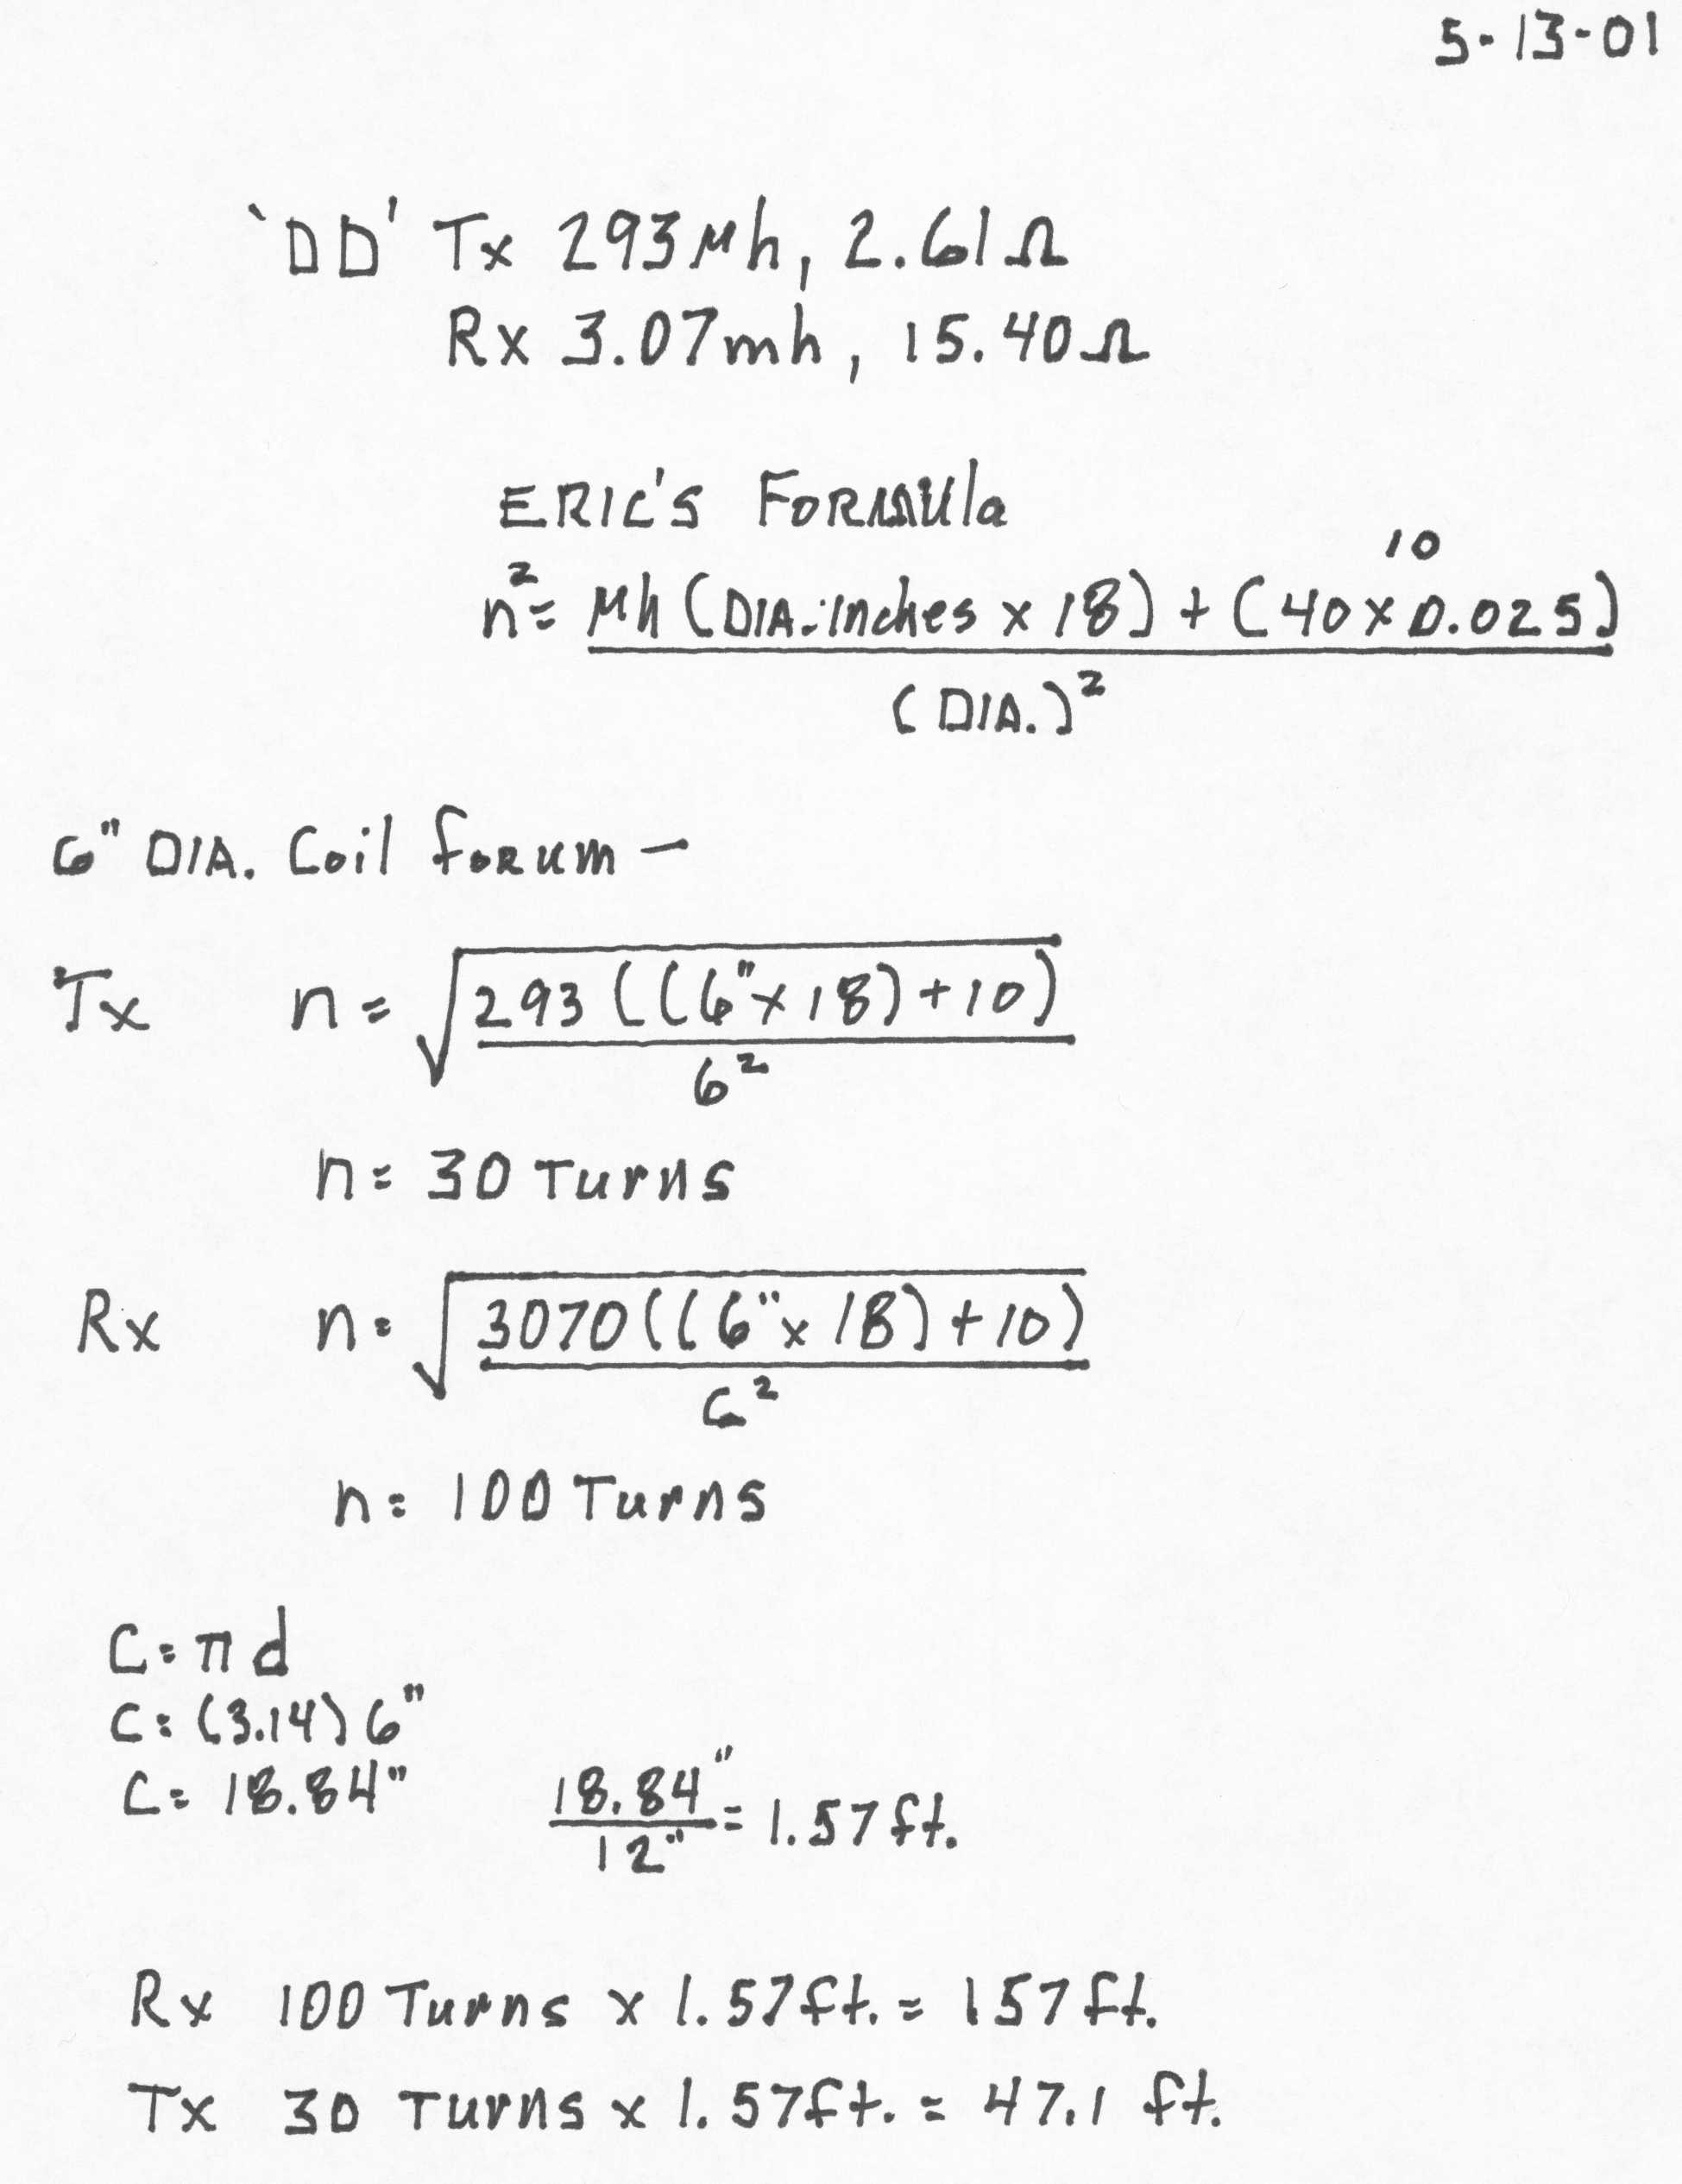 5-13-01
'DD' Tx 293μh, 2.61Ω
Rx 3.07mh, 15.40Ω
ERIC'S FORMula
10
n²= μh (DIA.:Inches x 18) + (40 x 0.025)
(DIA.)²
6" DIA. Coil foRum –
Tx n= √293 ((6"x18)+10)
6²
n= 30 Turns
Rx n= √3070((6"x 18)+10)
6²
n= 100 Turns
C=πd
C= (3.14) 6"
C= 18.84"
18.84" = 1.57 ft.
12"
Rx 100 Turns x 1.57ft. = 157 ft.
Tx 30 Turns x 1.57ft. = 47.1 ft.